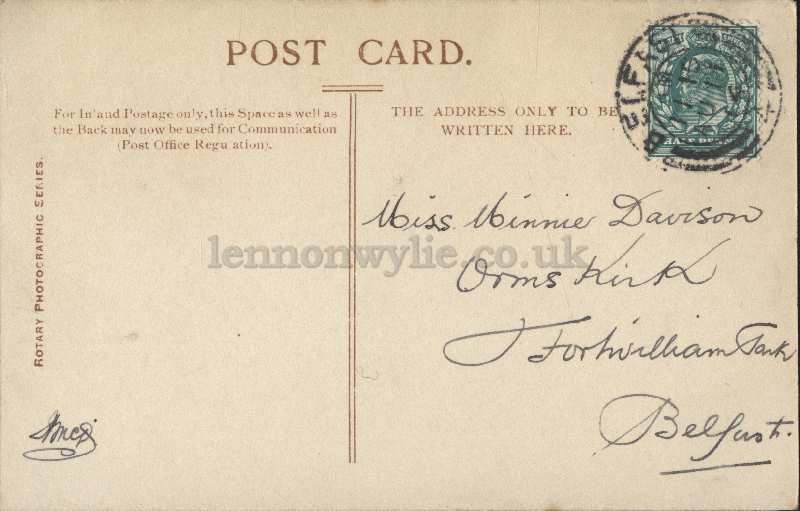 POST CARD.
For Inland Postage only, this Space as well as
the Back may now be used for Communication
(Post Office Regu ation).
THE ADDRESS ONLY TO BE
WRITTEN HERE.
BELFAST
HALF PENNY
ROTARY PHOTOGRAPHIC SERIES.
lennonwylie.co.uk
Miss Minnie Davison
Orms Kirk
Fortwilliam Park
Belfast.